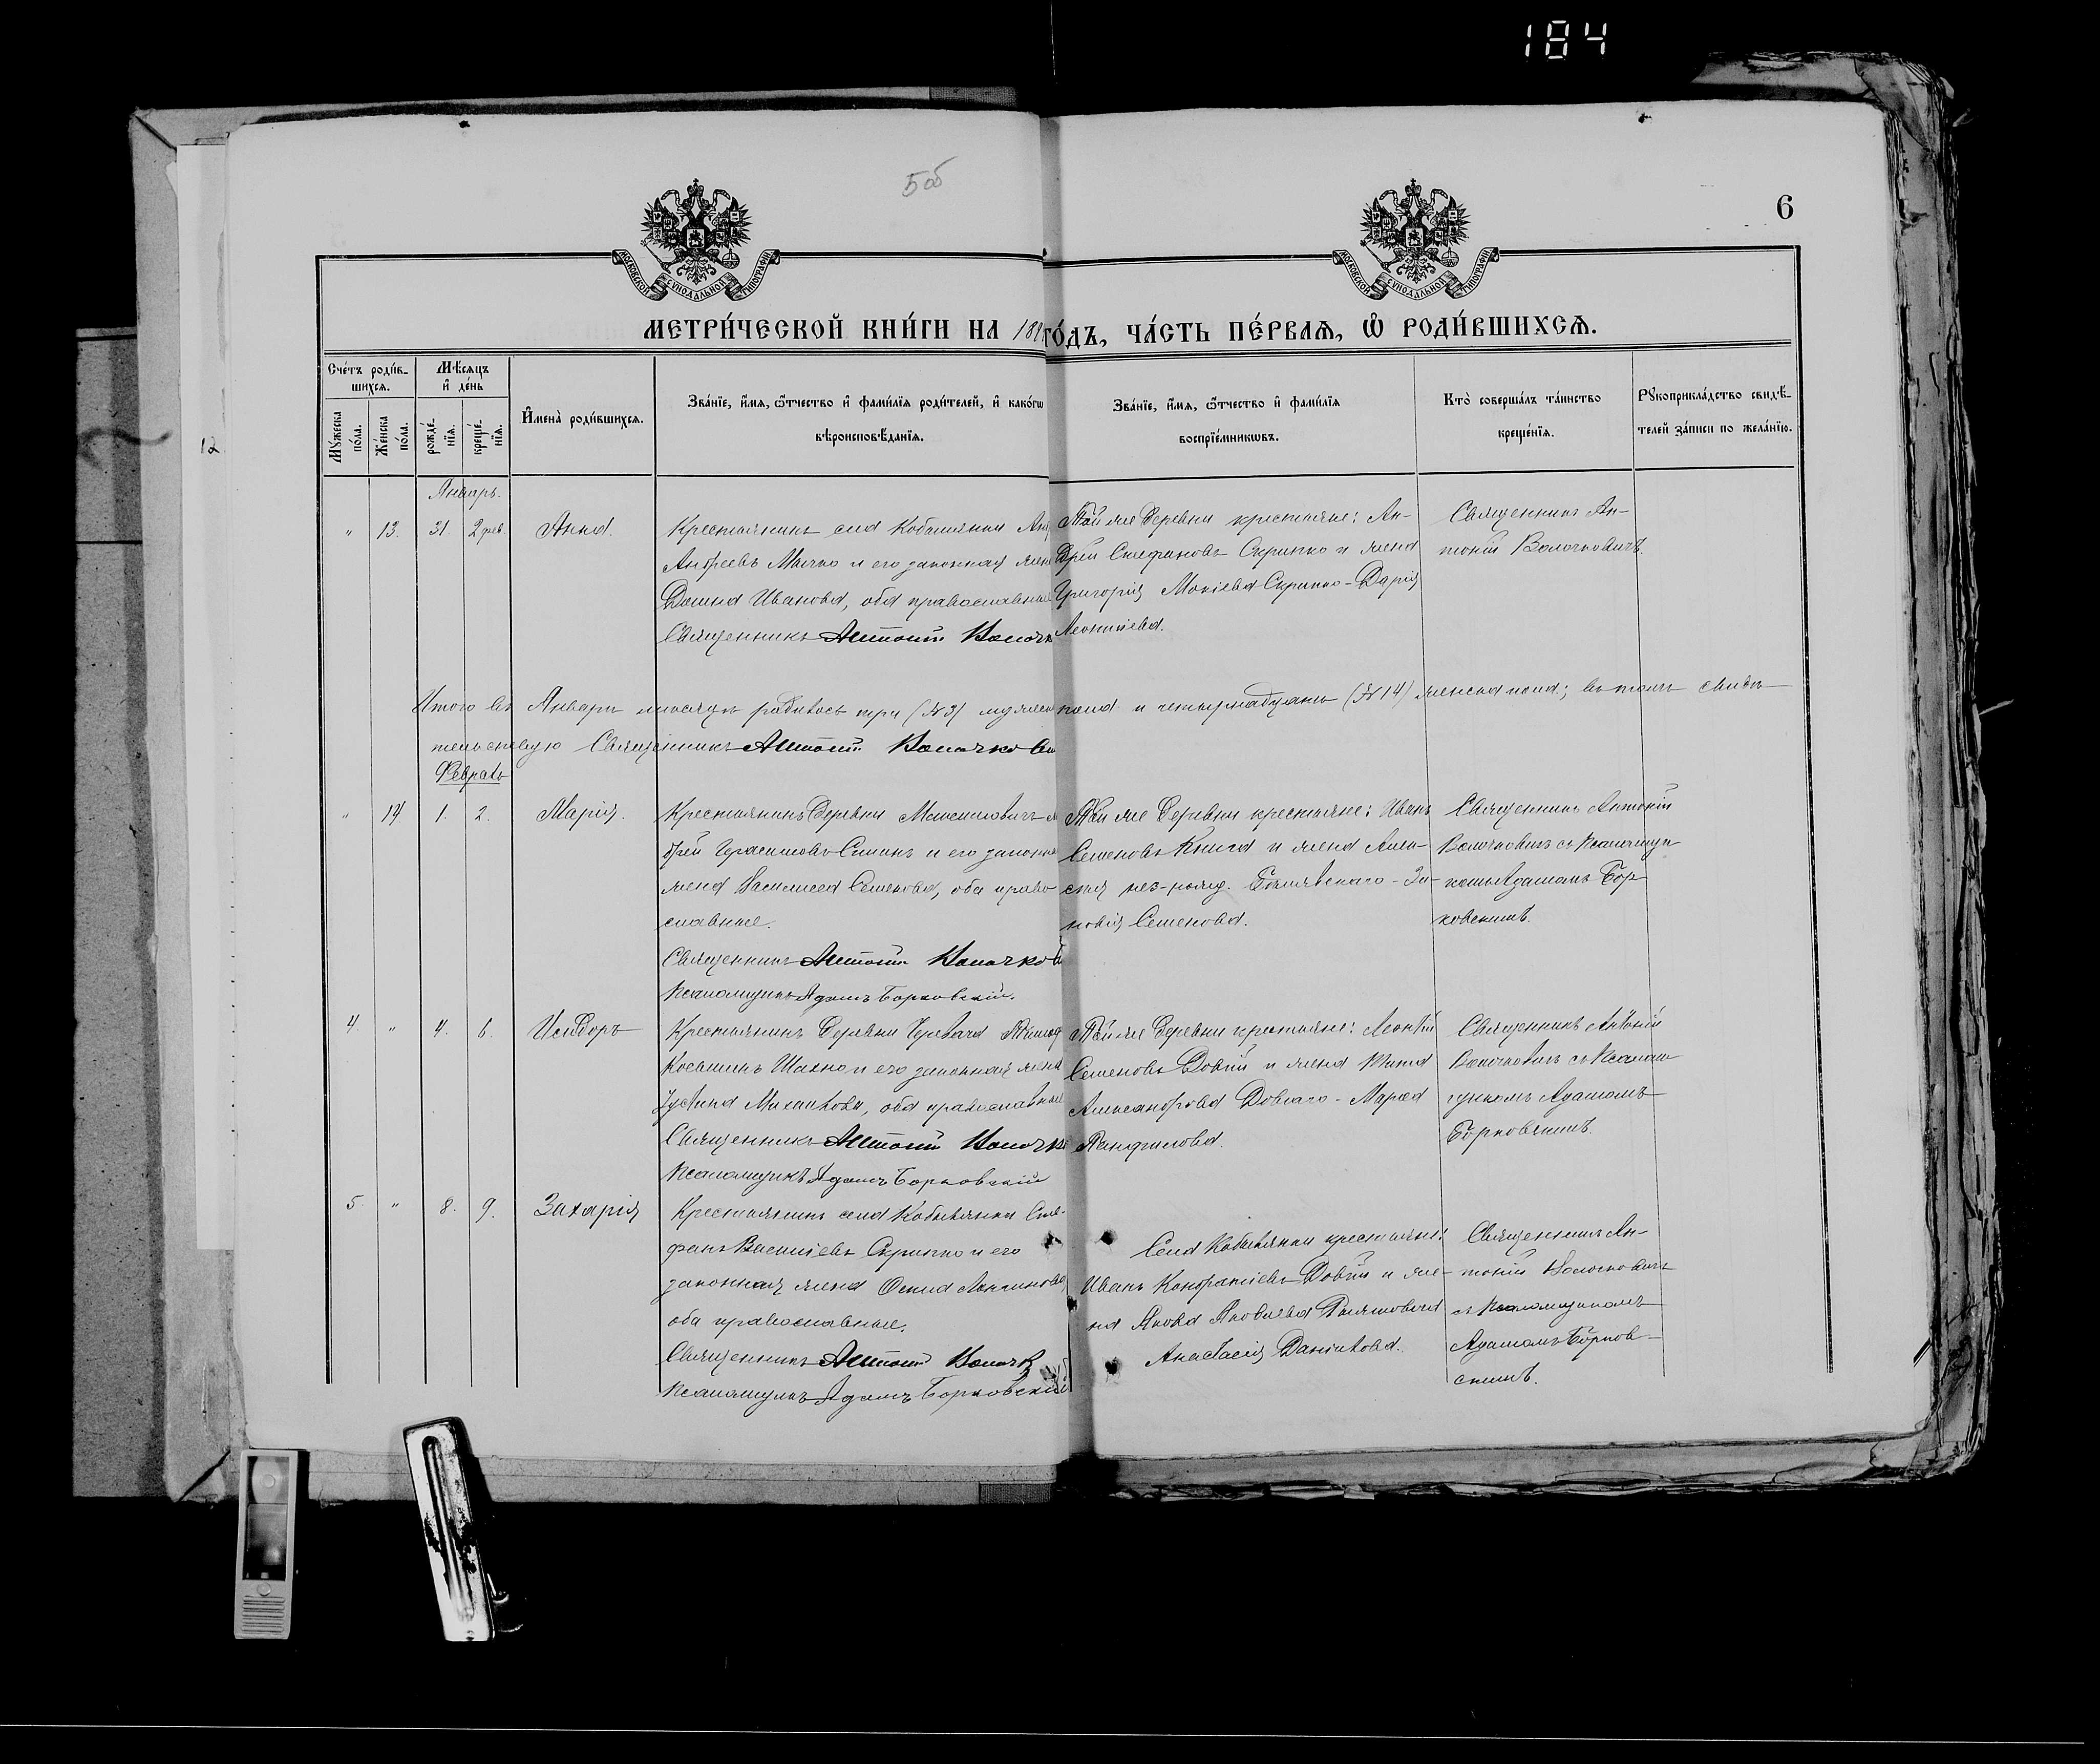 184
5 об
6
МОСКОВСКОЙ СѴНОДАЛЬНОЙ ТИПОГРАФІИ
МОСКОВСКОЙ СѴНОДАЛЬНОЙ ТИПОГРАФІИ
МЕТРИ́ЧЕСКОЙ КНИ́ГИ НА 188 ГО́ДЪ, ЧА́СТЬ ПЕ́РВАѦ, Ѽ РОДИ́ВШИХСѦ.
Сче́тъ роди́в-
шихсѧ.
Мꙋ́жеска
по́ла.
Же́нска
по́ла.
Мѣ́сѧцъ
и҆ де́нь
рожде́-
нїѧ.
креще́-
нїѧ.
И҆мена̀ роди́вшихсѧ.
Зва́нїе, и҆́мѧ, ѻ҆́тчество и҆ фами́лїѧ роди́телей, и҆ како́гѡ
вѣроисповѣ́данїѧ.
Зва́нїе, и҆́мѧ, ѻ҆́тчество и҆ фами́лїѧ
воспрїе́мникѡвъ.
Кто̀ соверша́лъ та́инство
креще́нїѧ.
Рꙋкоприкла́дство свидѣ́-
телей за́писи по жела́нїю.
12
Январь.
" 13. 31. 2 фев. Анна.
Крестьянинъ села Кобылянки
Андреевъ Мычко и его законная жена
Домна Иванова, оба православные
Священникъ Антоній Волочк
Той же деревни крестьяне: Ан-
дрей Стефановъ Скрипко и жена
Григорія Мокіева Скрипко - Дарія
Леонтіева.
Священникъ Ан-
тоній Волочковичъ.
Итого въ Январѣ мѣсяцѣ родилось три (№ 3) мужеска пола и четырнадцать (№ 14) женска пола; въ томъ свидѣ-
тельствую Священникъ Антоній Волочкови
Февраль
" 14 1. 2. Марія.
Крестьянинъ деревни
дрей Герасимовъ и его законная
жена Василиса Семенова, оба право-
славные.
Священникъ Антоній Волочков
Псаломщикъ Адамъ Борковскій.
Той же деревни крестьяне: Иванъ
Семеновъ Книга и жена Алек-
сія Семенова.
Священникъ Антоній
Волочковичъ съ Псаломщи-
комъ Адамомъ Бор-
ковскимъ.
4. " 4. 6. Исидоръ
Крестьянинъ деревни
и его законная жена
Іустина Михайлова, оба православные
Священникъ Антоній Волочк
Псаломщикъ Адамъ Борковскій
Той же деревни крестьяне: Леонтій
Семеновъ Довгій и жена
Александрова Довгаго - Марѳа
Панфилова.
Священникъ Антоній
Волочковичъ съ Псалом-
щикомъ Адамомъ
Борковскимъ.
5. " 8. 9. Захарія
Крестьянинъ села Кобылянки Сте-
фанъ Васильевъ Скрипко и его
законная жена
оба православные.
Священникъ Антоній Волочк
Псаломщикъ Адамъ Борковскій
Села Кобылянки крестьяне:
Иванъ Кондратіевъ Довгій и же-
на Якова Яковлева
Анастасія Даніилова.
Священникъ Ан-
тоній Волочковичъ
съ Псаломщикомъ
Адамомъ Борков-
скимъ.